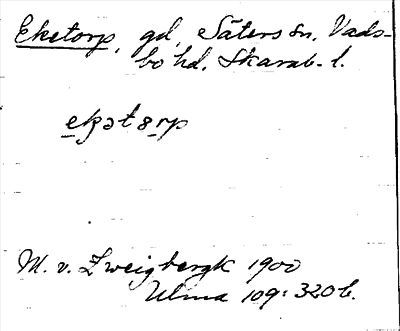 Eketorp, gd, Säters sn, Vads-
bo hd, Skarab. l.
ekətɵrp
M. v. Zweigbergk 1900
Ulma 109:320 b.